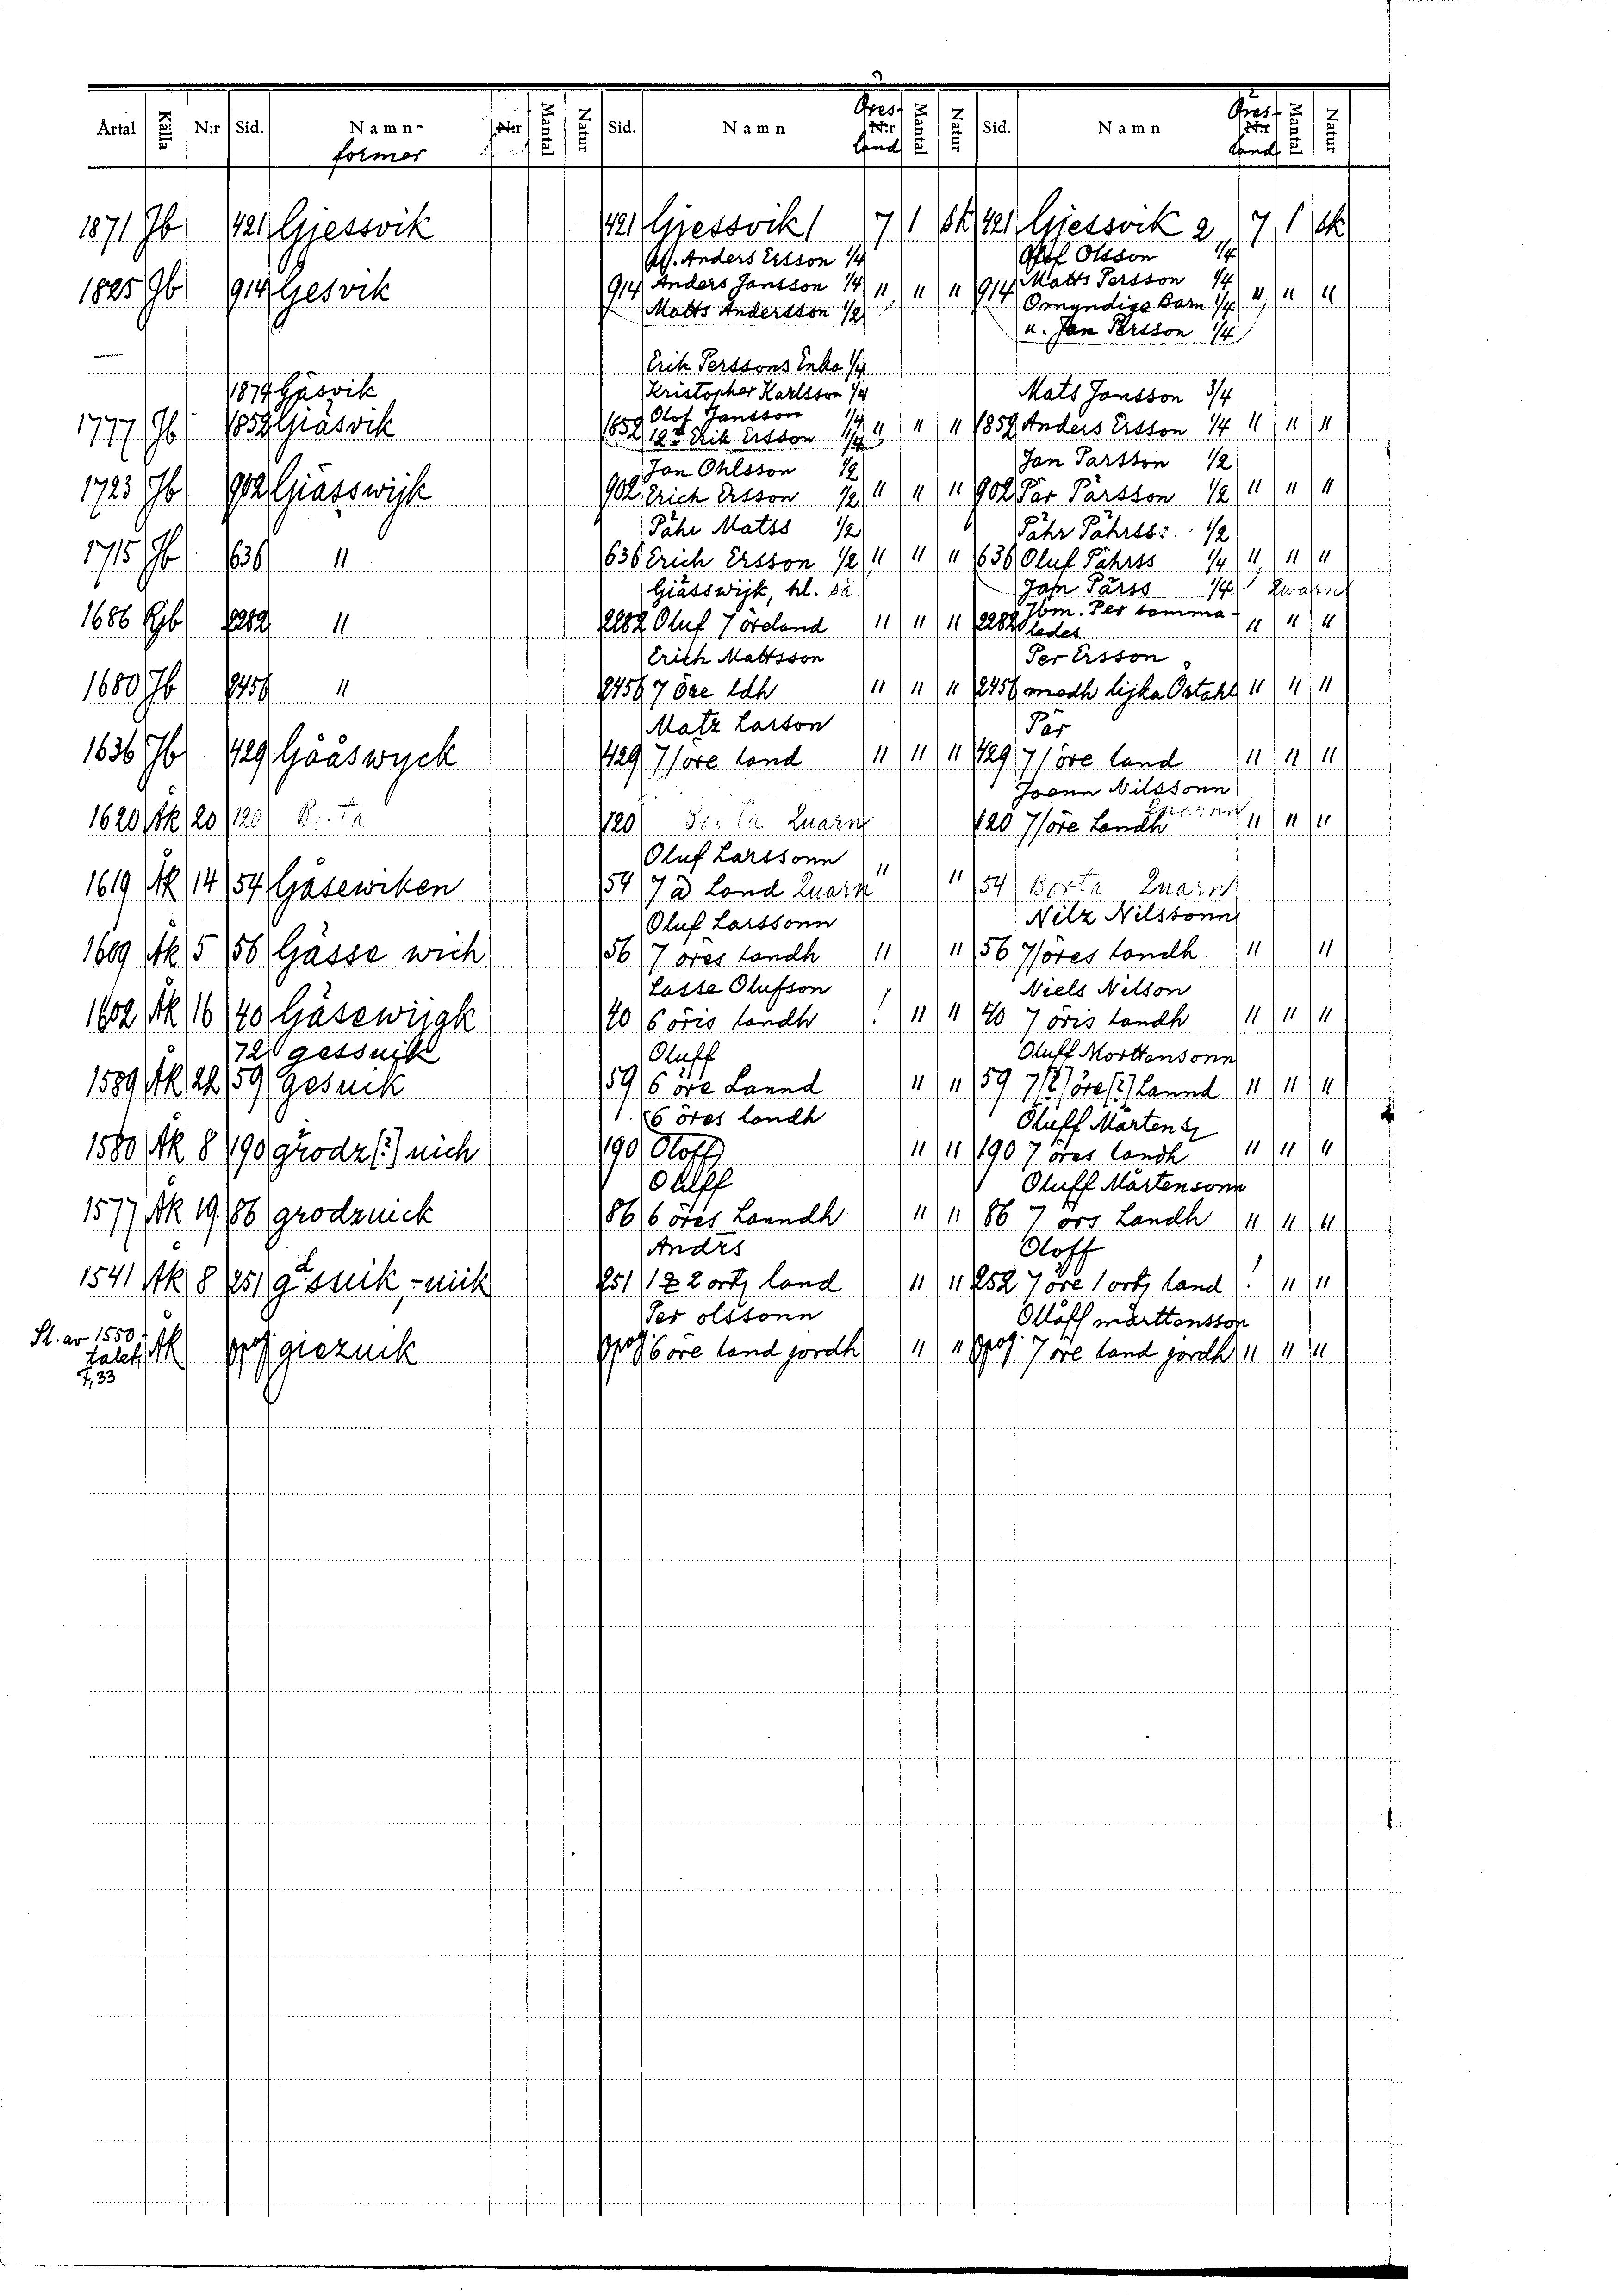 Årtal Källa N:r Sid. Namn- Mantal Natur Sid. Namn Öres Mantal Natur Sid. Namn Öres Mantal Natur
former land land
1871 Jb 421 Gjessvik 421 Gjessvik 1 7 1 sk 421 Gjessvik 2 7 1 sk
Af. Anders Ersson 1/4 Olof Olsson 1/4
1825 Jb 914 Gesvik 914 Anders Jansson 1/4 " " " 914 Matts Persson 1/4 " " "
Matts Andersson 1/2 Omyndige Barn 1/4
u. Jan Persson 1/4
Erik Perssons Enka 1/4
1874 Gäsvik Kristopher Karlsson 1/4 Mats Jansson 3/4
1777 Jb 1859 Giäsvik 1859 Olof Jansson 1/4 " " " 1859 Anders Ersson 1/4 " " "
Erik Ersson 1/4
Jan Ohlsson 1/2 Jan Parsson 1/2
1723 Jb 902 Giässwijk 902 Erich Ersson 1/2 " " " 902 Pär Pärsson 1/2 " " "
Pähr Matss 1/2 Pähr Pährss: 1/2
1715 Jb 636 " 636 Erich Ersson 1/2 " " " 636 Oluf Pährss 1/4 " " "
Giässwijk, hl. bä. Jan Pärss 1/4 Kwarn
1686 Rjb 2282 " 2282 Oluf 7 öreland " " " 2282 Ibm. Per samma- " " "
ledes
Erich Mattsson Per Ersson
1680 Jb 2456 " 2456 7 Öre ldh " " " 2456 medh lijka Östahl " " "
Matz Larson Pär
1636 Jb 429 Gååswyck 429 7/öre land " " " 429 7/öre land " " "
Joenn Nilssonn
1620 Äk 20 120 Borta 120 Borta Quarn 120 7/öre Landh Quarnn " " "
Oluf Larssonn
1619 Äk 14 54 Gåsewiken 54 7 ð Land Quarn " " 54 Borta Quarn
Oluf Larssonn Nilz Nilssonn
1609 Äk 5 56 Gåsse wich 56 7 öres landh " " 56 7/öres landh " "
Lasse Olufson Niels Nilson
1602 Äk 16 40 Gåsewijgk 40 6 öris landh ! " " 40 7 öris landh " " "
72 gessuik Oluff Oluff Morttensonn
1589 Äk 22 59 Gesuik 59 6 öre Lannd " " 59 7(?) öre(?) Lannd " " "
6 öres landh Oluff Mårtensz
1580 Äk 8 190 grodz(?) uich 190 Oloff " " 190 7 öres landh " " "
Oluff Oluff Mårtensonn
1577 Äk 19 86 grodzuick 86 6 öres Lanndh " " 86 7 örs Landh " " "
Andrs Oloff
1541 Äk 8 251 gessuik, -wiik 251 1 & 2 ortz land " " 252 7 öre 1 ortz land ! " "
Per olssonn Ollåff mårttensson
Sl. av 1550-
talet Äk opag giezuik opag 6 öre land jordh " " opag 7 öre land jordh " " "
7,33